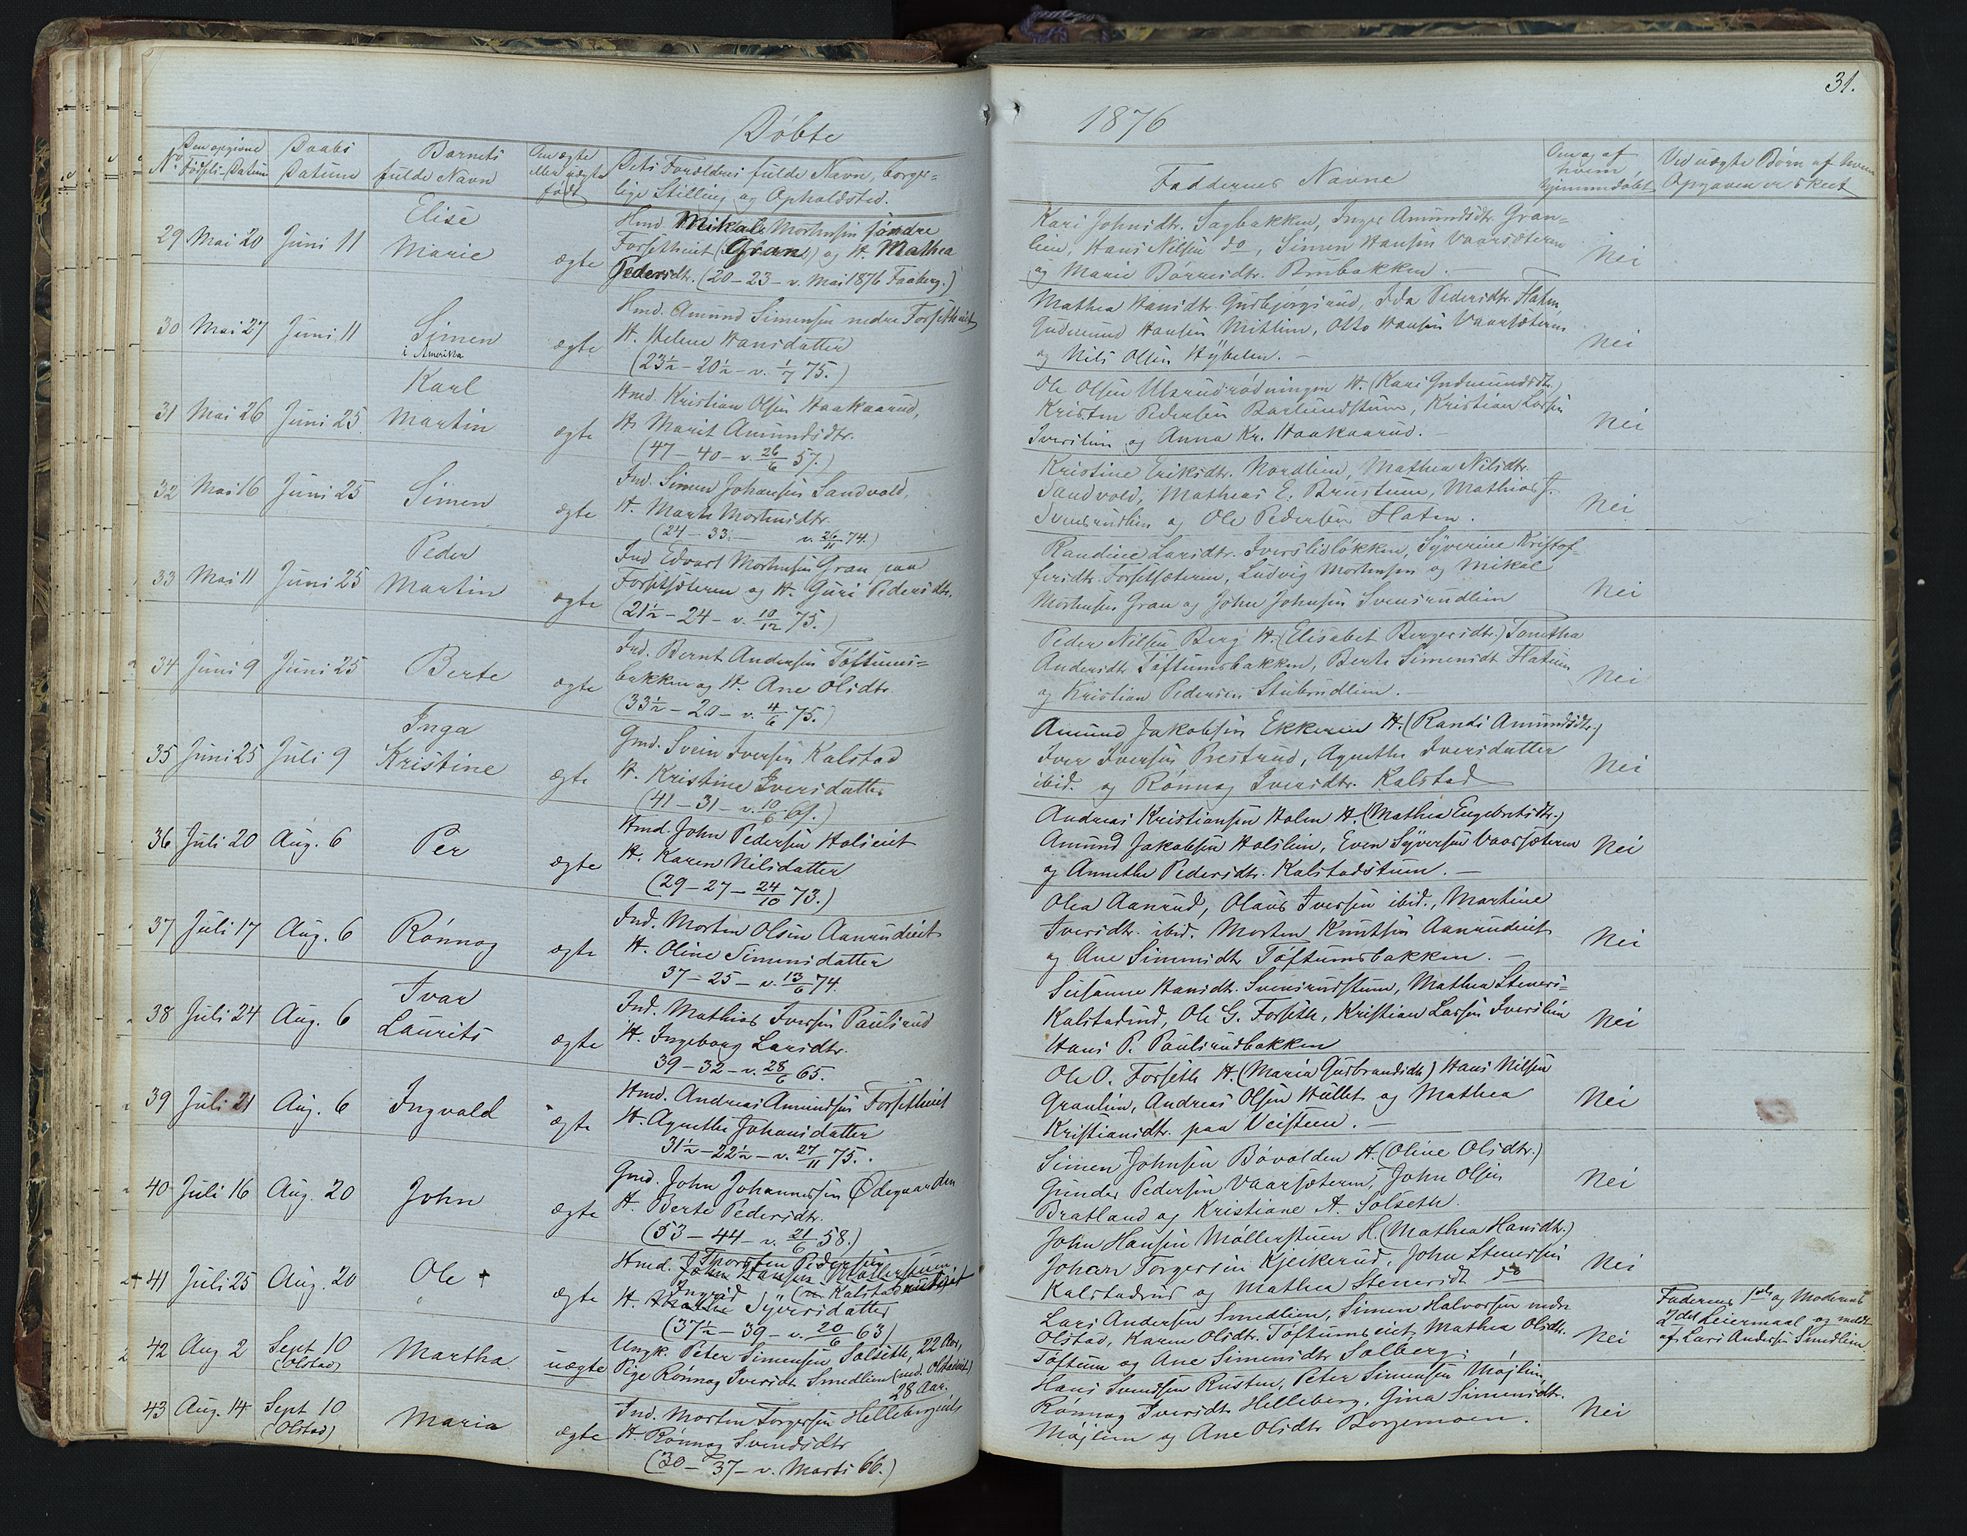 31.
Døbte
1876
No. Den opgivne Fødsels-Datum
Daabs Datum
Barnets fulde Navn
Om ægte eller uægte født
Dets Forældres fulde Navn, borgelige Stilling og Opholdsted.
Faddernes Navne
Om og af hvem hjemmedøbt
Ved uægte Børn af hvem Opgaven er skeet
29 Mai 20 Juni 11 Elise Marie ægte
Hmd. Mikal Mortensen søndre
Forsetheiet (Gran) og H. Mathea
Pedersdtr. (20–23– v. Mai 1876 Faaberg.)
Kari Johnsdtr. Sagbakken, Inger Amundsdtr. Gran-
lien, Hans Nilsen do, Simen Hansen Vaarsæteren
og Marie Brubakken. –
Nei
30 Mai 27 Juni 11 Simen ægte
i Amerika
Hmd. Amund Simensen nedre Forsetheiet
H. Helene Hansdatter
(23½ – 20½ – v. 1/7 75.)
Mathea Hansdtr. Gusbjørgsrud, Ida Pedersdtr. Flaten,
Gudmund Hansen Mitlien, Otto Hansen Vaarsæteren
og Nils Olsen Hybelen. –
Nei
31 Mai 26 Juni 25 Karl Martin ægte
Hmd. Kristian Olsen Haakaarud,
H. Marit Amundsdtr.
(47 – 40 – v. 26/6 57.)
Ole Olsen Ulsrudrødningen H. (Kari Gudmundsdtr.)
Kristen Pedersen Baklundstuen, Kristian Larsen
Iverslien og Anna Kr. Haakaarud. –
Nei
32 Mai 16 Juni 25 Simen ægte
Ind. Simen Johansen Sandvold,
H. Marte Mortensdtr.
(24 – 33. – v. 26/11 74.)
Kristine Eriksdtr. Nordlien, Mathea Nilsdtr.
Sandvold, Mathias E. Brustuen, Mathias J.
Svensrudlien og Ole Pedersen Flaten.
Nei
33 Mai 11 Juni 25 Peder Martin ægte
Ind. Edvart Mortensen Gran paa
Forsetsæteren og H. Guri Pedersdtr.
(21½ – 24 – v. 10/12 75.)
Randine Larsdtr. Iversliløkken, Syverine Kristof-
fersdtr. Forsetsæteren, Ludvig Mortensen og Mikal
Mortensen Gran og John Johnsen Svensrudlien
Nei
34 Juni 9 Juni 25 Berte ægte
Ind. Bernt Andersen Tøftums-
bakken og H. Ane Olsdtr.
(33½ – 20 – v. 4/6 75.)
Peder Nilsen Berg H. (Elisabet Bergersdtr.)
Andersdtr Tøftumsbakken, Berte Simensdt Flatum
og Kristian Pedersen Stubrudlien. –
Nei
35 Juni 25 Juli 9 Inga Kristine ægte
Gmd. Svein Iversen Kalstad
H. Kristine Iversdatter
(41 – 31 – v. 10/6 69.)
Amund Jakobsen Ekkeren H. (Randi Amundsdtr.)
Iver Iversen Prestrud, Agnethe Iversdatter
ibid. og Rønnog Iversdtr. Kalstad
Nei
36 Juli 20 Aug. 6 Per ægte
Hmd. John Pedersen Holseiet
H. Karen Nilsdatter
(29 – 27 – 24/10 73.)
Andreas Kristiansen Holen H. (Mathea Engebretsdtr.)
Amund Jakobsen Holslien, Even Syversen Vaarsæteren
og Annethe Pedersdtr. Kalstadstuen. –
Nei
37 Juli 17 Aug. 6 Rønnog ægte
Ind. Morten Olsen Aanrudeiet
H. Oline Simensdatter
37 – 25 – v. 13/6 74.
Olea Aanrud, Olaus Iversen ibid., Martine
Iversdtr. ibid. Morten Knutsen Aanrudeiet
og Ane Simensdtr Tøftumsbakken. –
Nei
38 Juli 24 Aug. 6 Ivar Laurits ægte
Ind. Mathias Iversen Paulsrud
H. Ingeborg Larsdtr.
39 – 32 – v. 28/6 65.
Susanne Hansdtr. Svensrudstuen, Mathea Steners-
Kalstadrud, Ole G. Forseth, Kristian Larsen Iverslien
Hans P. Paulsrudbakken
Nei
39 Juli 21 Aug. 6 Ingvald ægte
Hmd. Andreas Amundsen Forsetheiet
H. Agnethe Johansdatter
31½ – 22½ – v. 27/11 75.
Ole O. Forseth H. (Maria Gulbrandsdtr) Hans Nilsen
Granlien, Andreas Olsen Hullet og Mathea
Kristiansdtr. paa Veisteen. –
Nei
40 Juli 16 Aug. 20 John ægte
Gmd. John Johannessen Ødegaarden
H. Berte Pedersdtr.
(53 – 44 – v. 21/6 58.)
Simen Johnsen Bøvolden H. (Oline Olsdtr.)
Gunder Pedersen Vaarsæteren, John Olsen
Bratland og Kristiane A. Solseth.
Nei
41 Juli 25 Aug. 20 Ole ægte
Thorsten Pedersen
Hmd. John Hansen Møllerstuen,
Ingrid (n. Kalstadrudeiet
H. Syversdatter
(37½ – 39 – v. 20/6 63)
John Hansen Møllerstuen H. (Mathea Hansdtr.)
Johan Torgersen Kjeikerud, John Stenersen
Kalstadrud og Mathea Stenersdt do
Nei
42 Aug 2 Sept 10 (Olstad) Martha uægte
Ungk. Peter Simensen Solseth, 22 Aar,
Pige Rønnog Iversdt Smedlien (ned. Olstadeiet)
28 Aar.
Lars Andersen Smedlien, Simen Halvorsen nedre
Olstad, Karen Olsdtr. Tøftumseiet, Mathea Olsdtr.
Tøftum og Ane Simensdtr Solberg.
Nei
Faderens 1ste og Moderens
2det Leiermaal og meldt
af Lars Andersen Smedlien.
43 Aug. 14 Sept 10 (Olstad) Maria ægte
Ind. Morten Torgersen Hellebergeiet
H. Rønnog Svendsdtr
(30 – 37 – v. Marts 66.)
Hans Svendsen Rusten, Peter Simensen Møjlien,
Rønnog Iversdt Helleberg, Gina Simensdtr.
Møjlien og Ane Olsdtr Borgemoen.
Nei